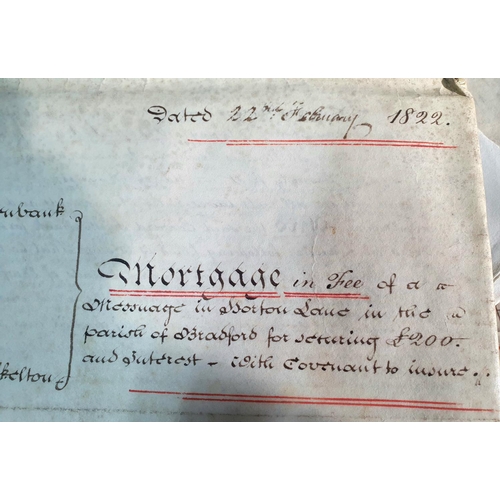 Dated 22nd February 1822.
enbank
Mortgage in Fee of a
Messuage in Horton Lane in the
parish of Bradford for securing £200.
and Interest - With Covenant to insure.
kelton